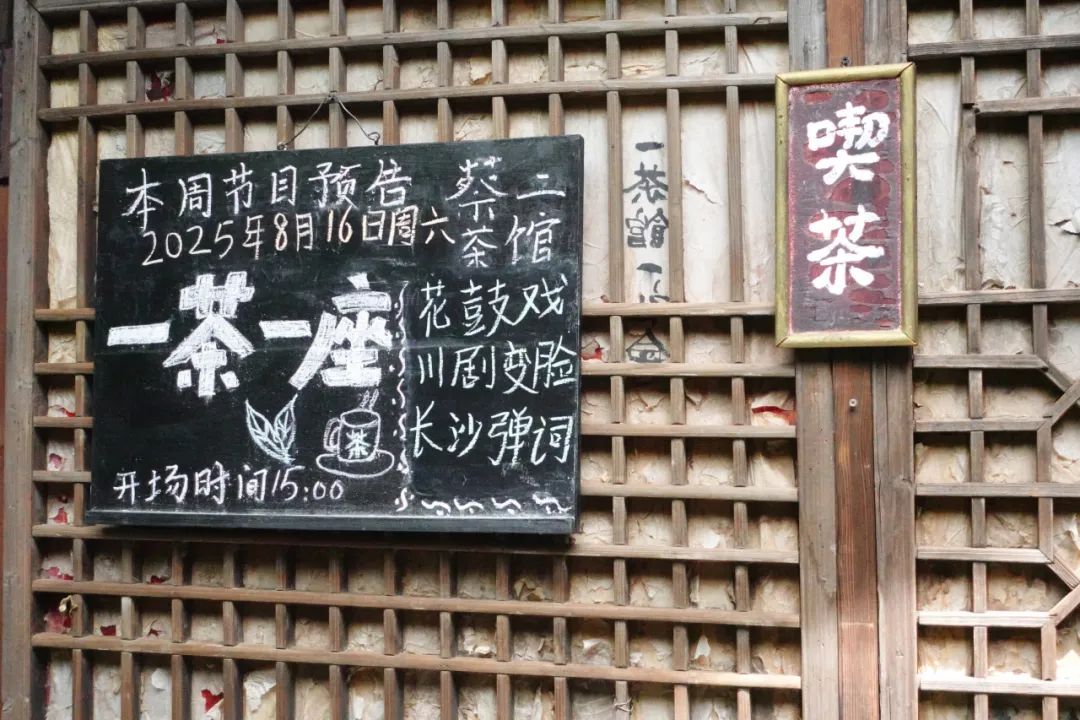 本周节目预告
2025年8月16日周六
蔡二
茶馆
一茶一座
花鼓戏
川剧变脸
长沙弹词
茶
开场时间15:00
一茶馆一
喫茶